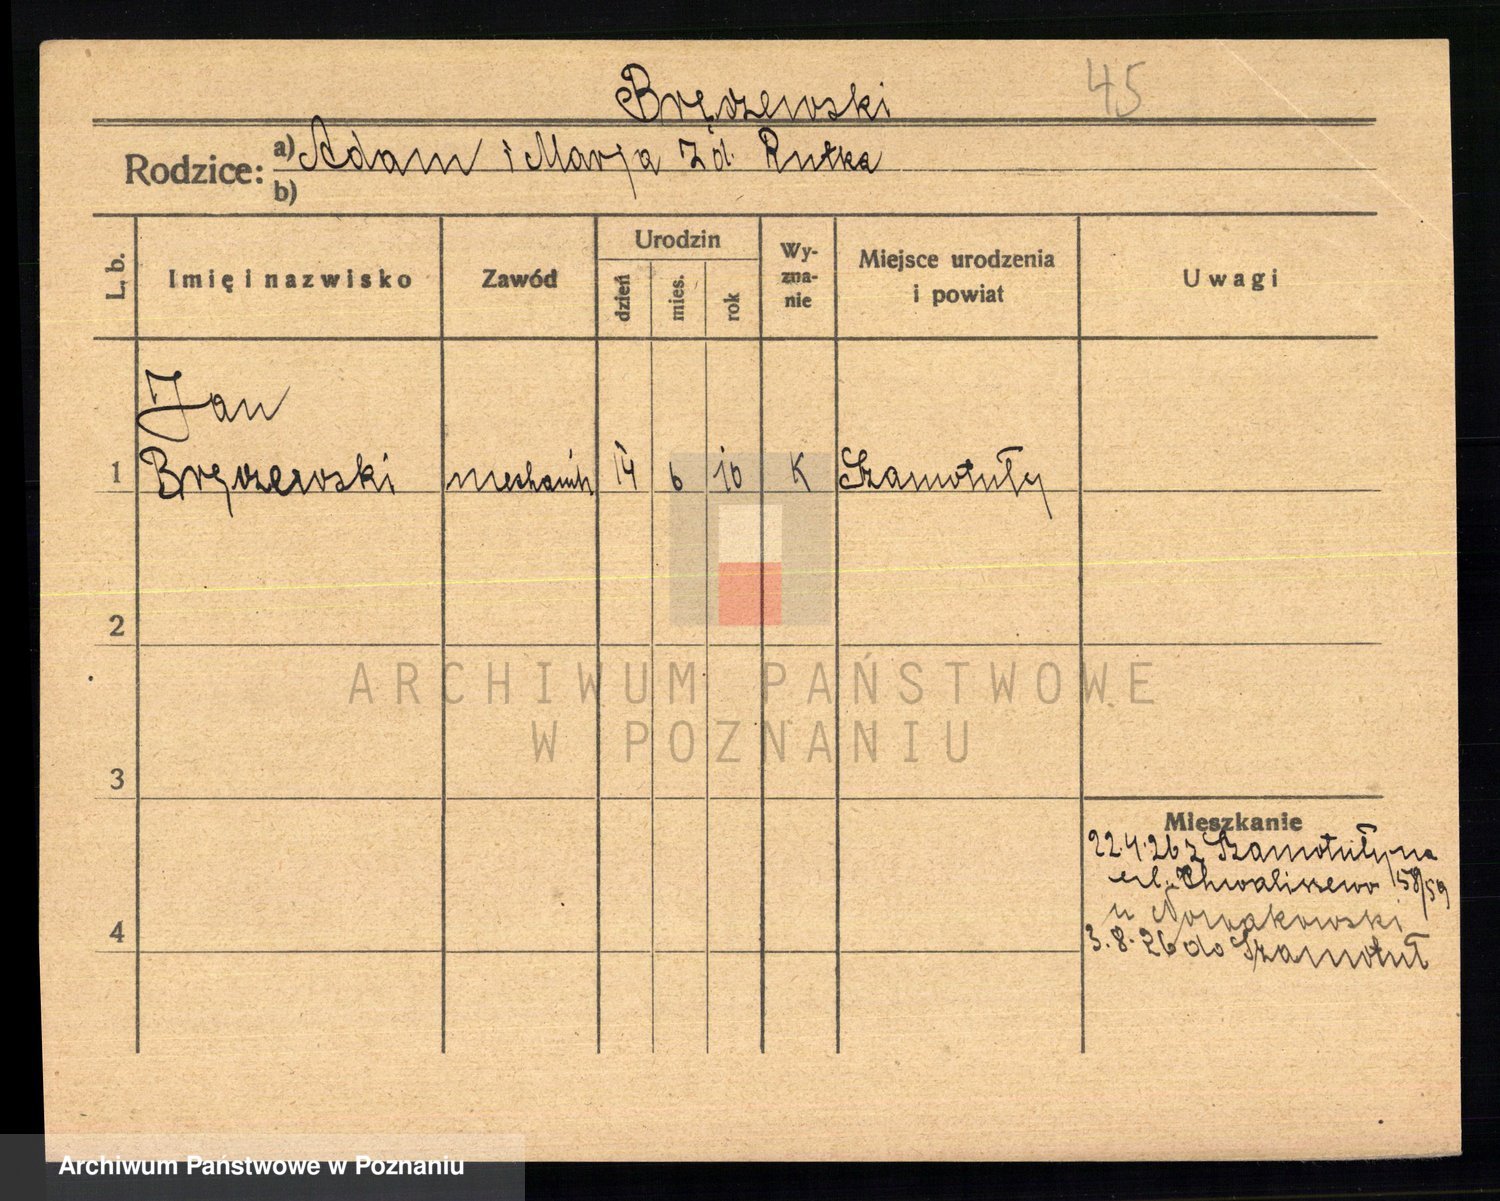 Bręczewski
45
Rodzice: a) Adam i Marja z d. Rutka
b)
L. b. Imię i nazwisko Zawód Urodzin dzień mies. rok Wyznanie Miejsce urodzenia i powiat Uwagi
Jan
1 Bręczewski mechanik 14 6 10 K Szamotuły
2
ARCHIWUM PAŃSTWOWE
W POZNANIU
3
Mieszkanie
22.4.26 z Szamotuły na
ul. Chwaliszewo 58/59
u Nowakowski
4
3.8.26 do Szamotuł
Archiwum Państwowe w Poznaniu